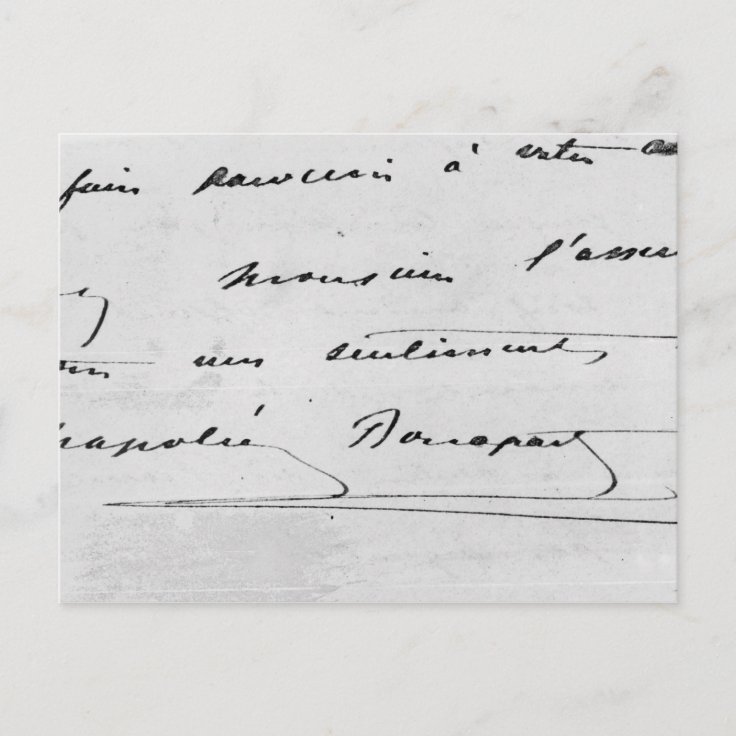 fair parvenir à votre
monsieur l'assu
mes sentiments
Napoléon Bonaparte